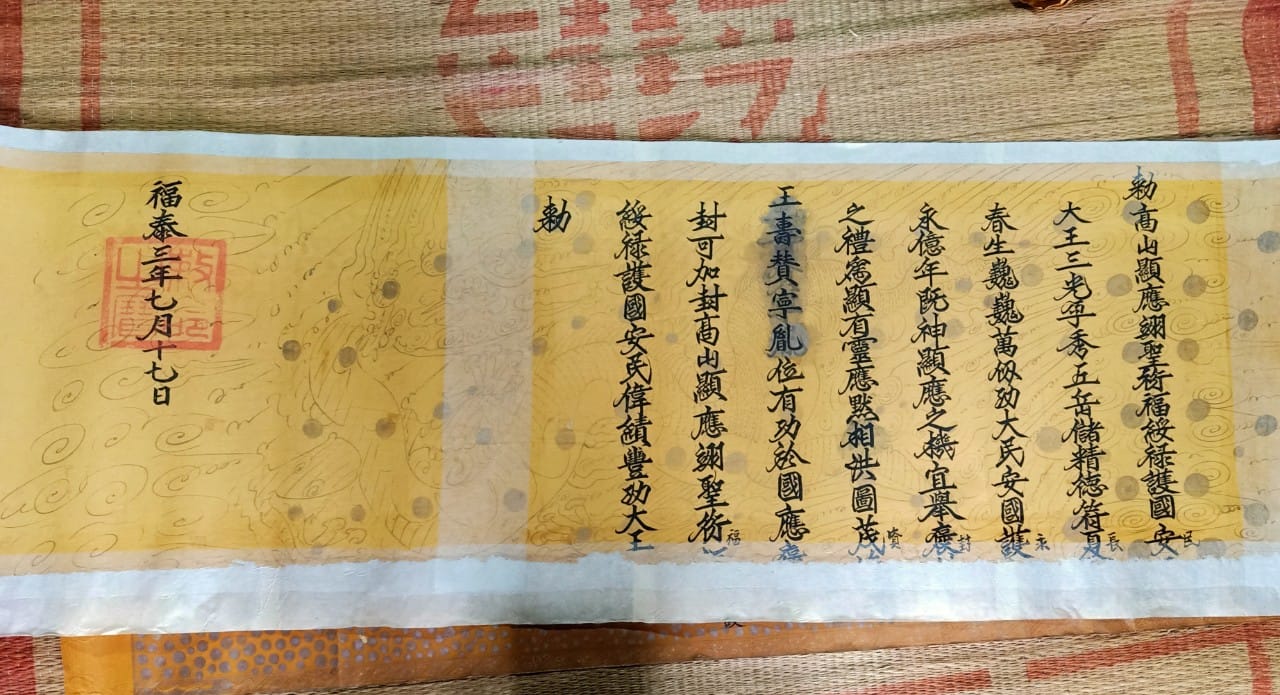 勅高山顯應翊聖衍福綏祿護國安民
大王三光孕秀五岳儲精德符夏長
春生巍巍萬仞功大民安國護
永億年既神顯應之機宜舉褒封
之禮爲顯有靈應默相洪圖茂
王壽賛寧胤位有功於國應褒
封可加封高山顯應翊聖衍福
綏祿護國安民偉績豐功大王
勅
福泰三年七月十七日